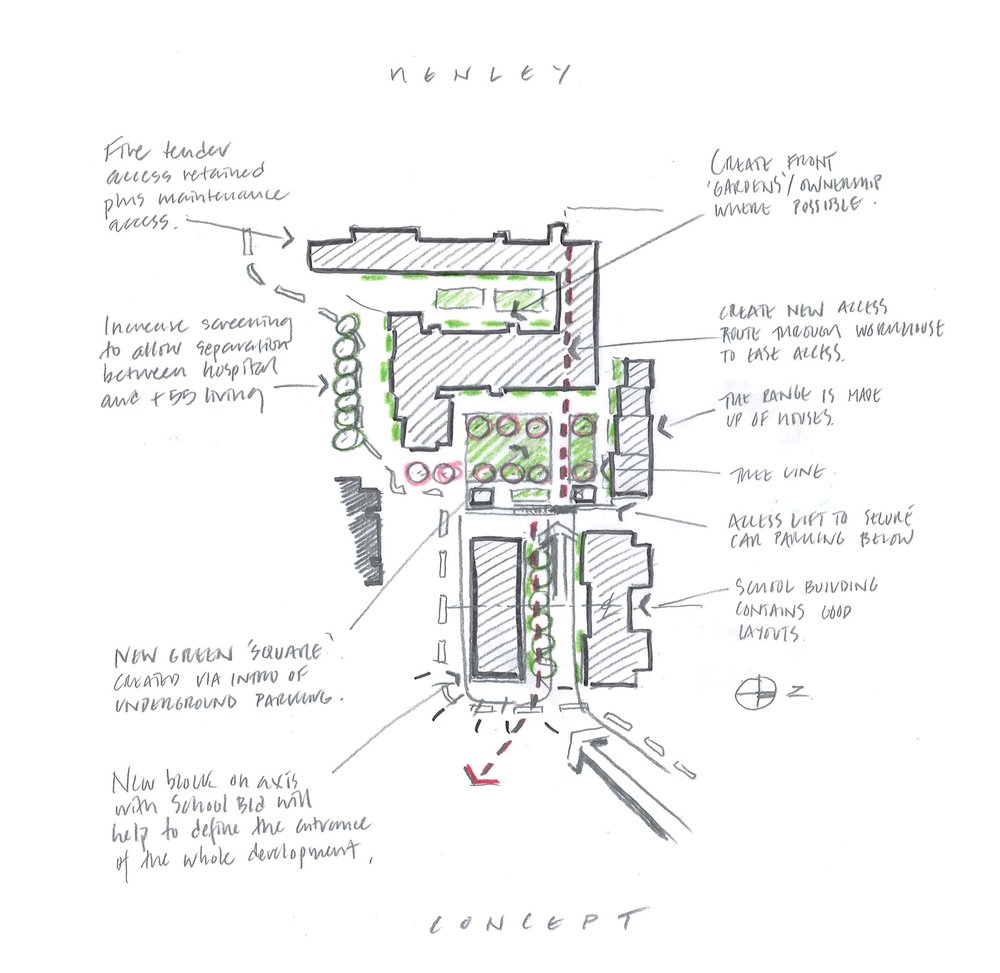 HENLEY
Fire tender
access retained
plus maintenance
access.
Increase screening
to allow separation
between hospital
and +55 living
NEW GREEN 'SQUARE'
CREATED VIA INTRO OF
UNDERGROUND PARKING.
New block on axis
with School Bld will
help to define the entrance
of the whole development.
CREATE FRONT
'GARDENS'/OWNERSHIP
WHERE POSSIBLE.
CREATE NEW ACCESS
ROUTE THROUGH WORKHOUSE
TO EASE ACCESS.
THE RANGE IS MADE
UP OF HOUSES.
TREE LINE
ACCESS LIFT TO SECURE
CAR PARKING BELOW
SCHOOL BUILDING
CONTAINS GOOD
LAYOUTS.
Z
CONCEPT